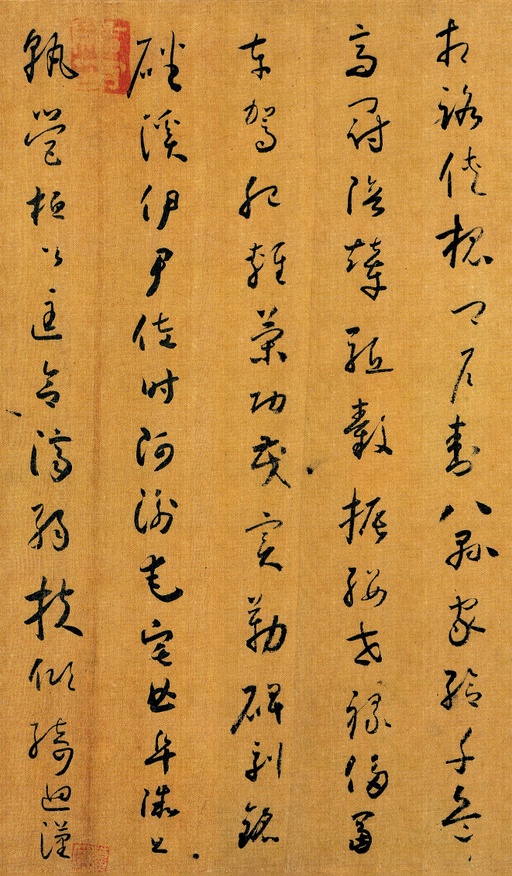 相路俠槐卿戶封八縣家給千兵
高冠陪輦驅轂振纓世祿侈富
車駕肥輕策功茂實勒碑刻銘
磻溪伊尹佐時阿衡奄宅曲阜微旦
孰營桓公匡合濟弱扶傾綺迴漢